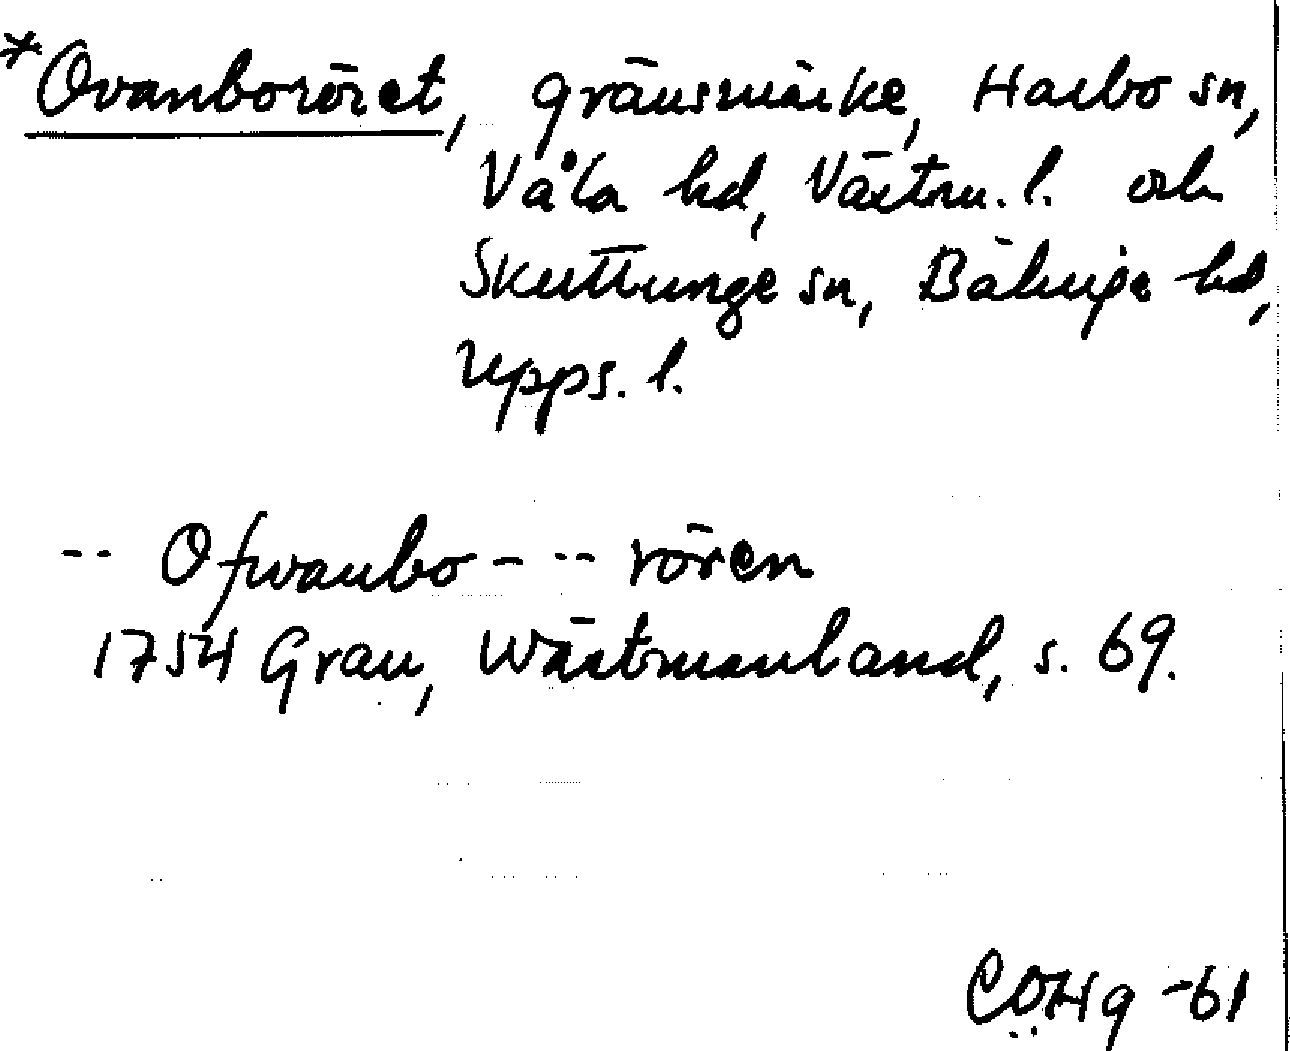 *Ovanboröret, gränsmärke, Harbo sn,
Våla hd, Västm. l. och
Skuttunge sn, Bälinge hd,
Upps. l.
-- Ofwanbo - -- rören
1754 Grau, Wästmanland, s. 69.
CÖHg -61